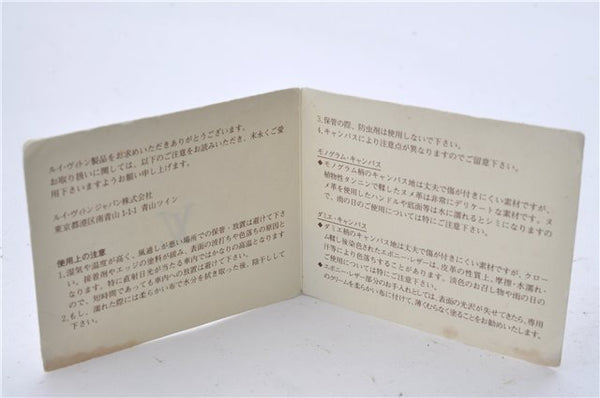 ルイ・ヴィトン製品をお求めいただきありがとうございます。
お取り扱いに関しては、以下のご注意をお読みいただき、末永くご愛
用下さいますようお願い申し上げます。
ルイ・ヴィトン ジャパン株式会社
東京都港区南青山 1-1-1 青山ツイン
使用上の注意
1.湿気や温度が高く、風通しが悪い場所での保管・放置は避けて下さ
い。接着剤やエッジの塗料が緩み、表面の波打ちや色落ちの原因と
なります。特に直射日光が当たる車内ではかなりの高温となります
ので、短時間であっても車内への放置は避けて下さい。
2.もし、濡れた際には柔らかい布で水分を拭き取った後、陰干しして
下さい。
3.保管の際、防虫剤は使用しないで下さい。
4.キャンバスにより注意点が異なりますのでご留意下さい。
モノグラム・キャンバス
◆モノグラム柄のキャンバス地は丈夫で傷が付きにくい素材ですが、
植物性タンニンで鞣したヌメ革は非常にデリケートな素材です。ヌ
メ革を使用したハンドルや底面等は水に濡れるとシミになりますの
で、雨の日のご使用については特にご注意下さい。
ダミエ・キャンバス
◆ダミエ柄のキャンバス地は丈夫で傷が付きにくい素材ですが、クロー
ム鞣し後染色されたエボニー・レザーは、皮革の性質上、摩擦・水濡れ・
汗等により色落ちすることがあります。淡色のお召し物や雨の日の
ご使用については特にご注意下さい。
◆エボニー・レザー部分のお手入れとしては、表面の光沢が失せてきたら、専用
のクリームを柔らかい布に付けて、薄くむらなく塗ることをお勧めいたします。